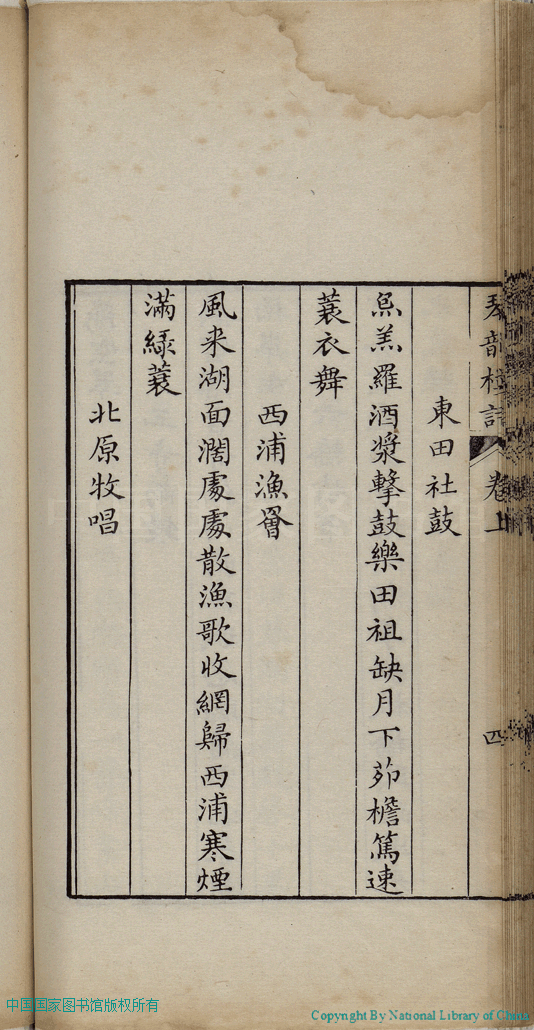 卷上
四
東田社鼓
炰羔羅酒漿擊鼓樂田祖缺月下茆檐篤速
蓑衣舞
西浦漁
風来湖面濶處處散漁歌收網歸西浦寒煙
滿綠蓑
北原牧唱
中国国家图书馆版权所有
Copyright By National Library of China